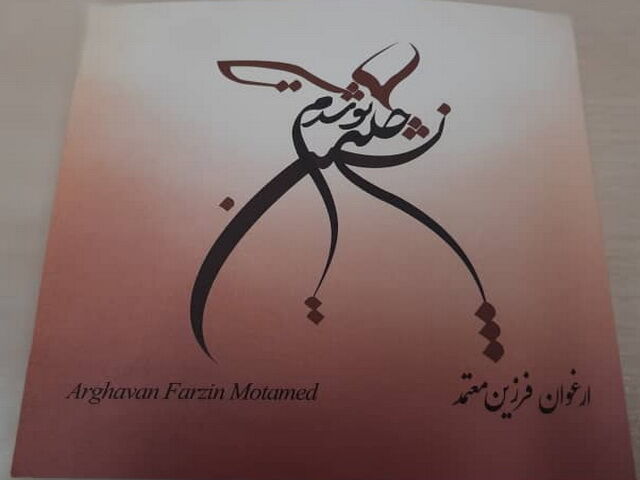 چله نشین تو شدم
Arghavan Farzin Motamed
ارغوان فرزین معتمد